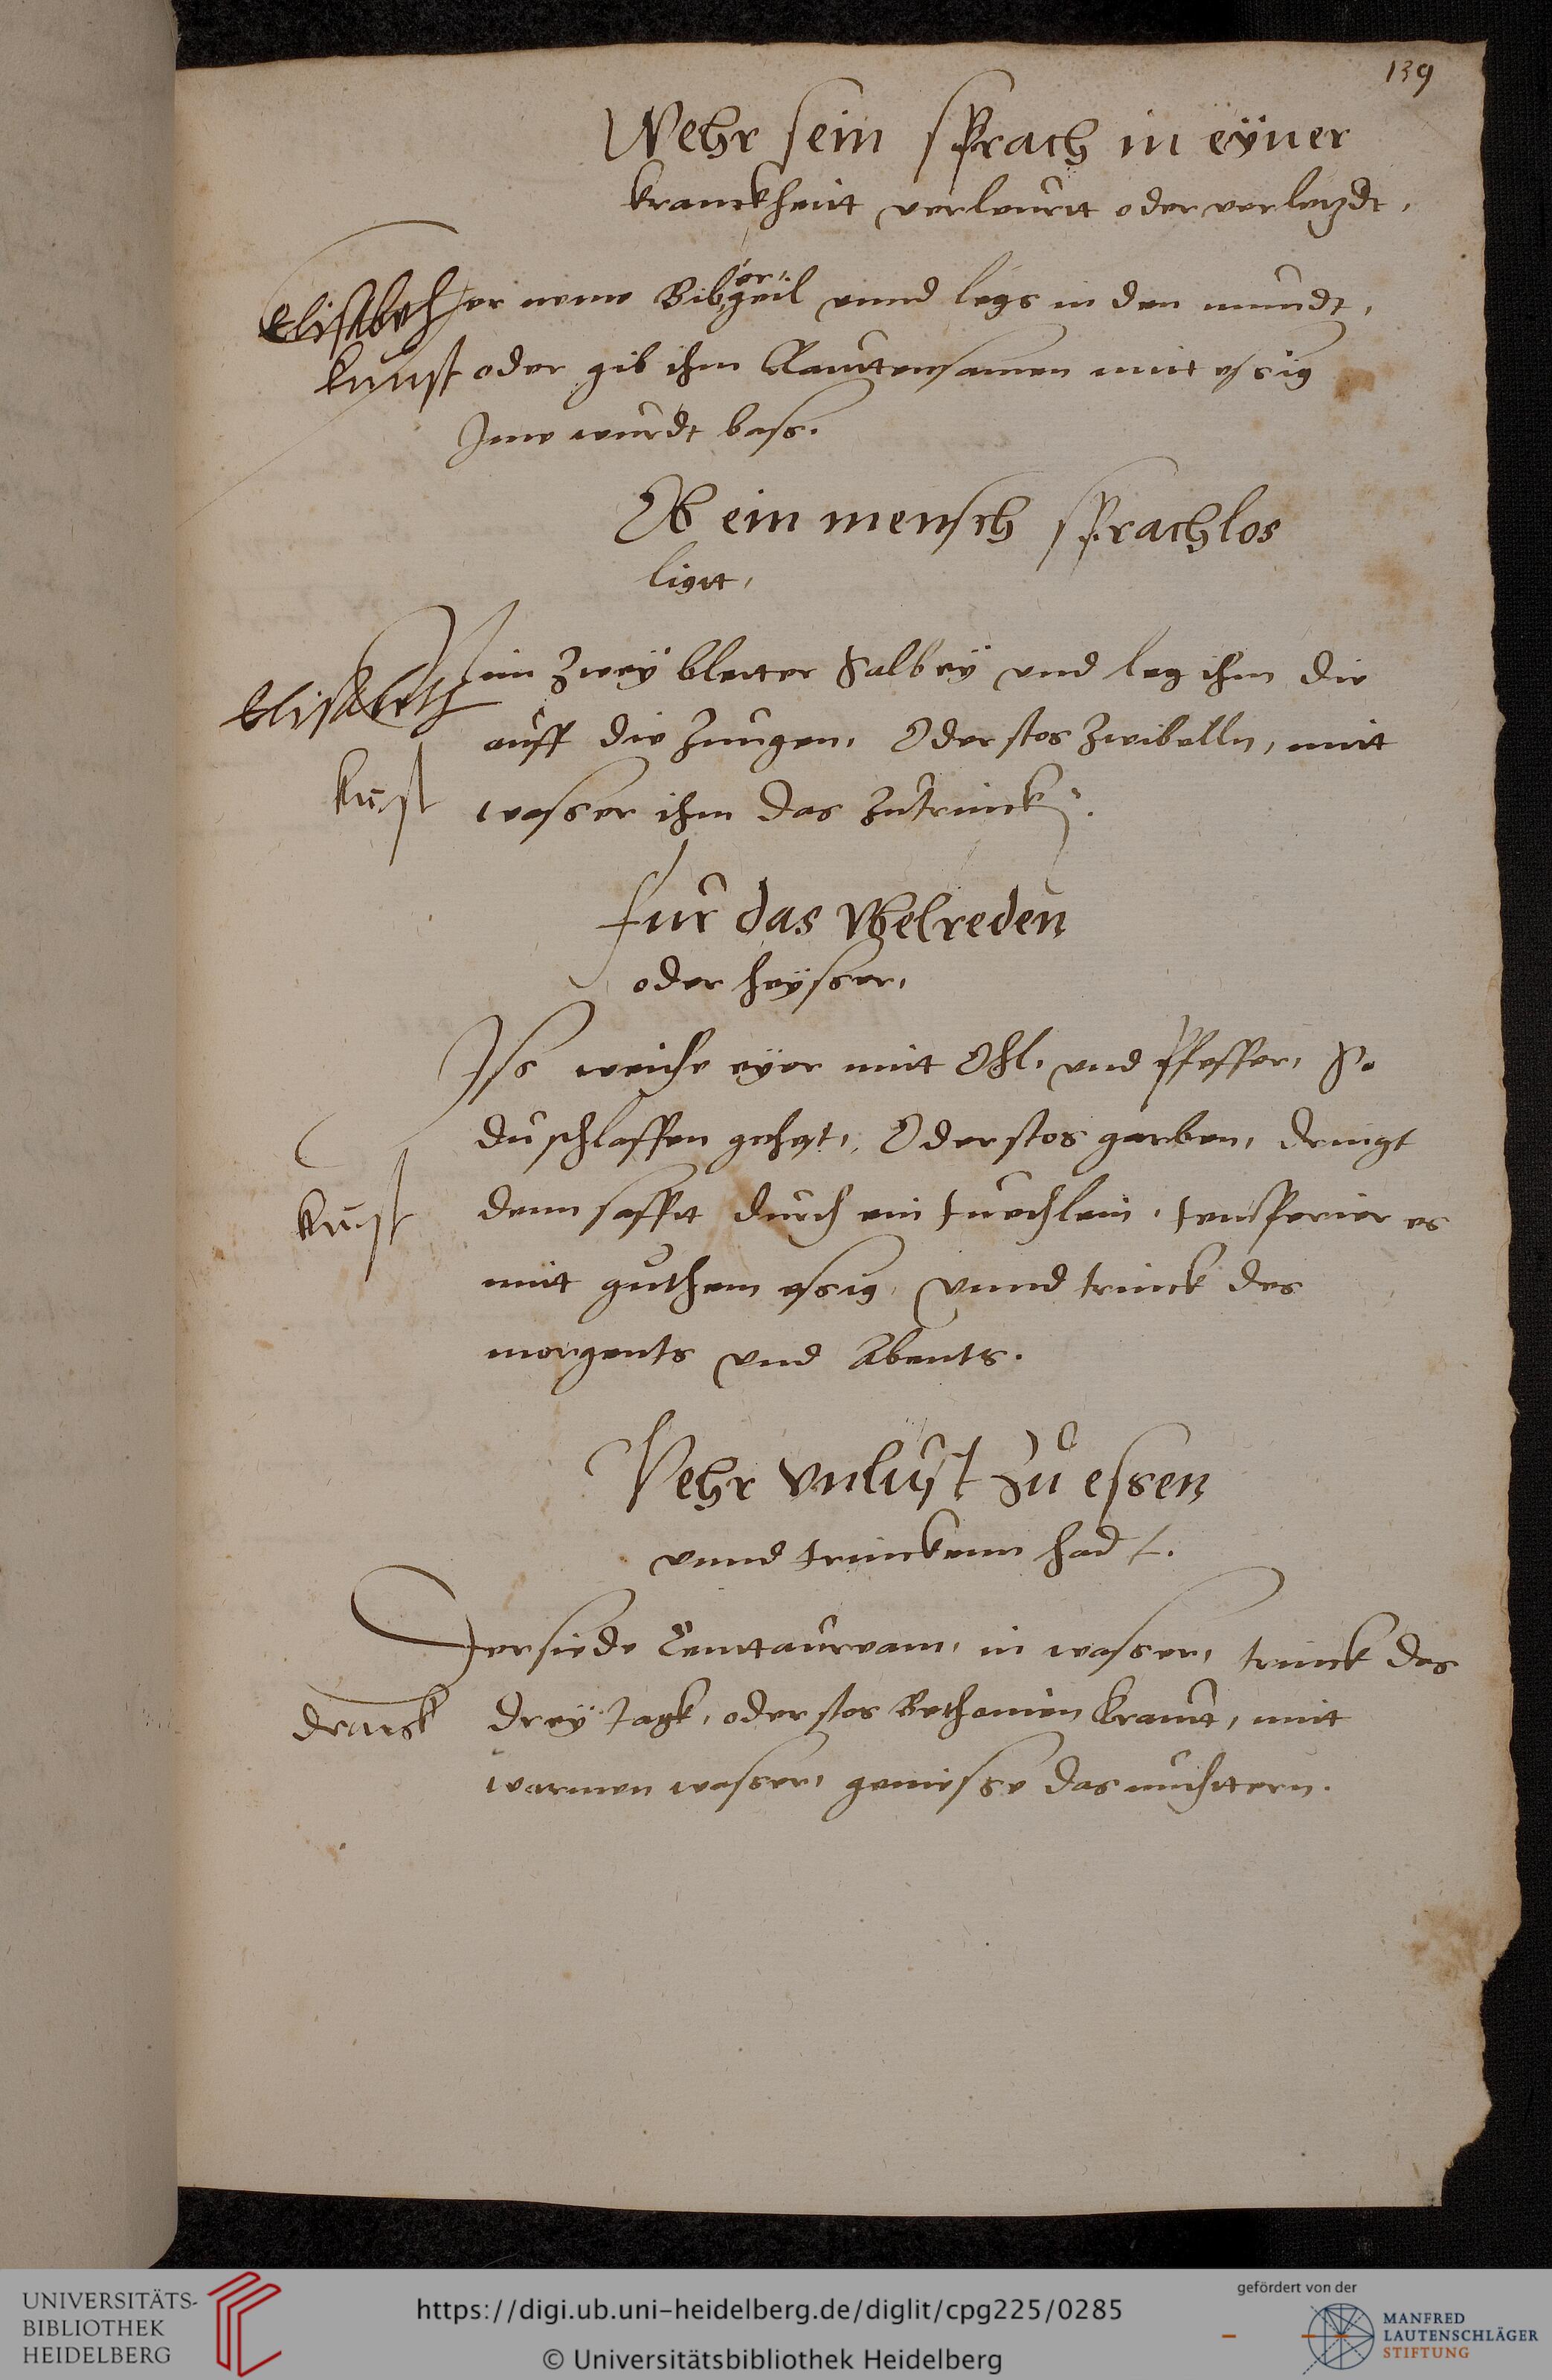 139
Wehr sein sprach in eÿner
kranckheitt verleurtt oder verletzdt,
Elisabeth
kunst
Der neme Bibergeil vnnd legs in den mundt,
oder gib ihm Rauttensamen mitt essig
Jme wurdt bass.
Ob ein mensch sprachlos
ligtt,
Elisabeth
kust
Nim zweÿ bletter Salbeÿ vnd leg ihm die
auff die zungen, Oder stos zwibelln, mitt
wasser ihm das zutrincken.
fur das Vbelreden
oder heÿsser,
kust
Jss weiche eÿer mitt Ohl, vnd pfeffer, So
du schlaffen gehest, Oder stos garben, dringt
denn safftt durch ein tuechlein, temsperier es
mitt guthem essig, vnnd trinck des
morgents vnd Abents.
Wehr vnlust zu essen
vnnd trinckenn hadt.
dranck
Der siede Centtauream, in wasser, trinck das
dreÿ tagk, oder stos Bethonien kraut, mitt
warmen wasser, geniesse das nuchttern.
UNIVERSITÄTS-
BIBLIOTHEK
HEIDELBERG
https://digi.ub.uni-heidelberg.de/diglit/cpg225/0285
© Universitätsbibliothek Heidelberg
gefördert von der
MANFRED
LAUTENSCHLÄGER
STIFTUNG